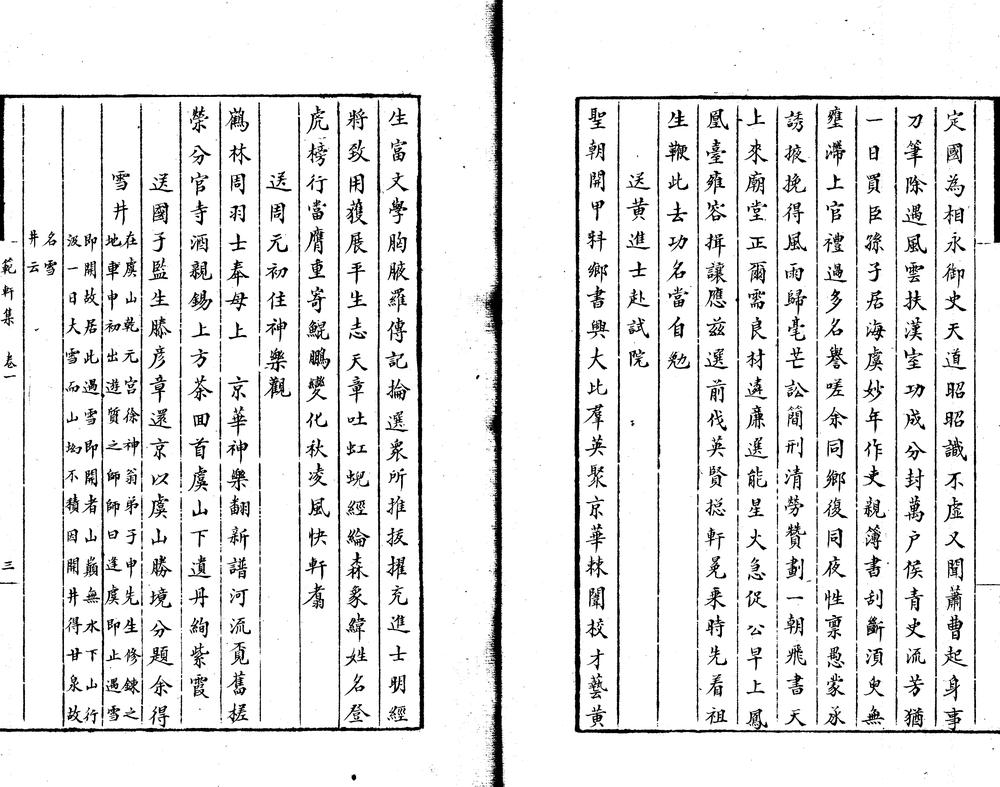 定國為相永御史天道昭昭識不虛又聞蕭曹起身事
刀筆除遇風雲扶漢室功成分封萬户侯青史流芳猶
一日買臣孫子居海虞妙年作吏親簿書剖斷湏臾無
壅滯上官禮遇多名譽嗟余同鄉復同夜性禀愚蒙承
誘掖挽得風雨歸毫芒訟簡刑清勞贊劃一朝飛書天
上來廟堂正爾需良材遴廉選能星火急促公早上鳳
凰臺雍容揖讓應兹選前伐英賢捴軒冕来時先着祖
生鞭此去功名當自勉
送黄進士赴試院
聖朝開甲科鄉書興大比羣英聚京華棘闈校才藝黄
生富文學胸腋羅傳記掄選衆所推拔擢充進士明經
將致用獲展平生志天章吐虹蜺經綸森象緯姓名登
虎榜行當膺重寄鯤鵬變化秋凌風快軒翥
送周元初住神樂觀
鶴林周羽士奉母上 京華神樂翻新譜河流覔舊槎
榮分官寺酒親錫上方茶回首虞山下遺丹絢紫霞
送國子監生滕彦章還京以虞山勝境分題余得
雪井
在虞山乾元宫徐神翁弟子申先生修鍊之
地車中初出遊質之師師曰逢虞即止遇雪
即開故居此遇雪即開者山巔無水下山行
汲一日大雪而山坳不積因開井得甘泉故
名雪
井云
範軒集 卷一 三